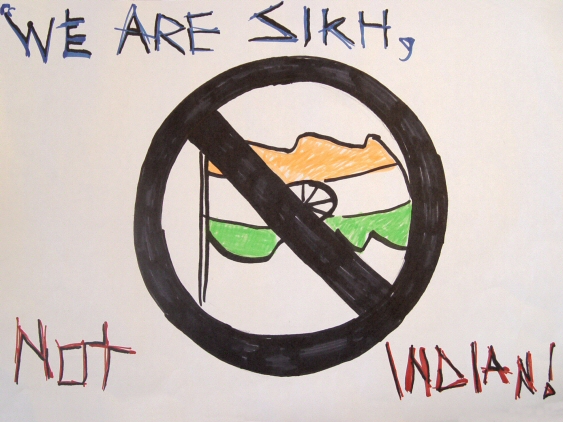 "WE ARE SIKH,
NOT INDIAN!